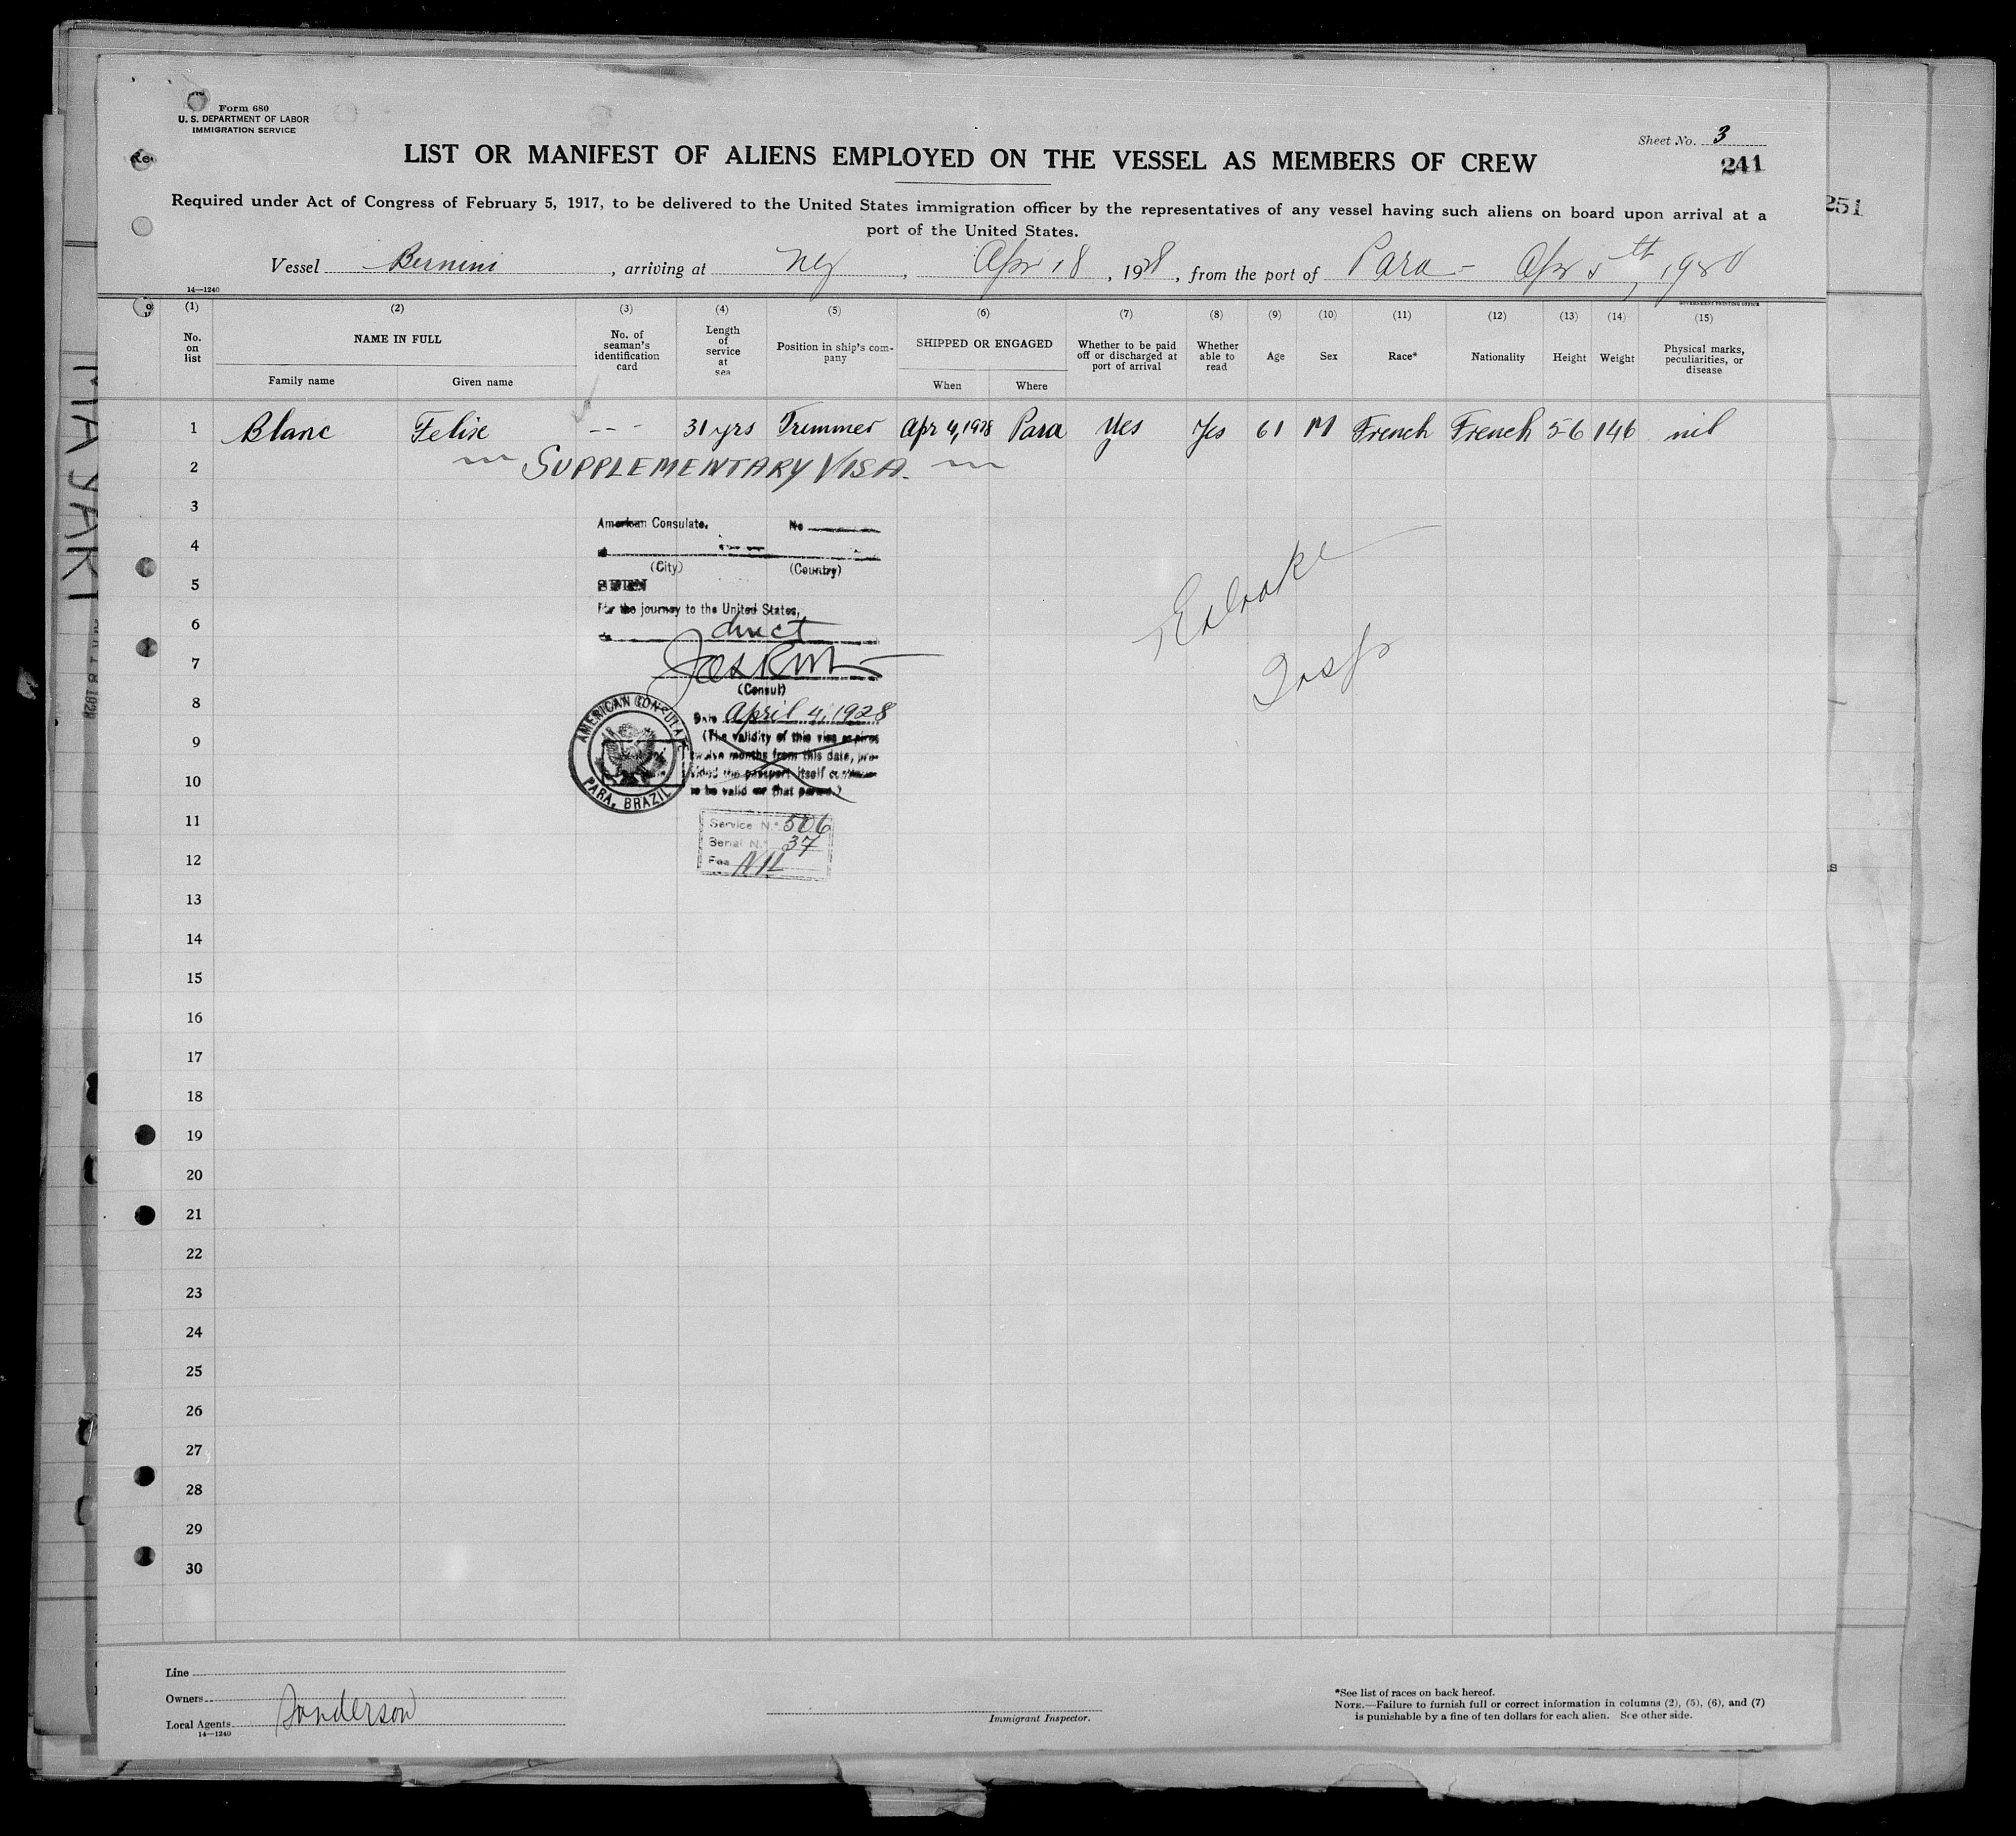 Form 680
U. S. DEPARTMENT OF LABOR
IMMIGRATION SERVICE
Sheet No. 3
241
251
LIST OR MANIFEST OF ALIENS EMPLOYED ON THE VESSEL AS MEMBERS OF CREW
Required under Act of Congress of February 5, 1917, to be delivered to the United States immigration officer by the representatives of any vessel having such aliens on board upon arrival at a
port of the United States.
Vessel Bernini, arriving at NY, Apr 18, 1928, from the port of Para - Apr 5th, 1928
14—1240
GOVERNMENT PRINTING OFFICE
(1) (2) (3) (4) (5) (6) (7) (8) (9) (10) (11) (12) (13) (14) (15)
No. on list NAME IN FULL No. of seaman's identification card Length of service at sea Position in ship's company SHIPPED OR ENGAGED Whether to be paid off or discharged at port of arrival Whether able to read Age Sex Race* Nationality Height Weight Physical marks, peculiarities, or disease
Family name Given name When Where
1 Blanc Felix --- 31 yrs Trimmer Apr 4, 1928 Para Yes Yes 61 M French French 5-6 146 nil
2 SUPPLEMENTARY VISA.
3
American Consulate. No
4
(City) (Country)
5 SEEN
For the journey to the United States,
6 direct
7
(Consul)
8 Date April 4, 1928
9 (The validity of this visa expires
twelve months from this date, pro-
vided the passport itself continues
10 to be valid for that period.)
AMERICAN CONSULATE
PARA, BRAZIL
11 Service N.º 506
Serial N.º 37
12 Fee NIL
Insp
13
14
15
16
17
18
19
20
21
22
23
24
25
26
27
28
29
30
Line
Owners
Local Agents Sanderson
14—1240
Immigrant Inspector.
*See list of races on back hereof.
NOTE.—Failure to furnish full or correct information in columns (2), (5), (6), and (7)
is punishable by a fine of ten dollars for each alien. See other side.